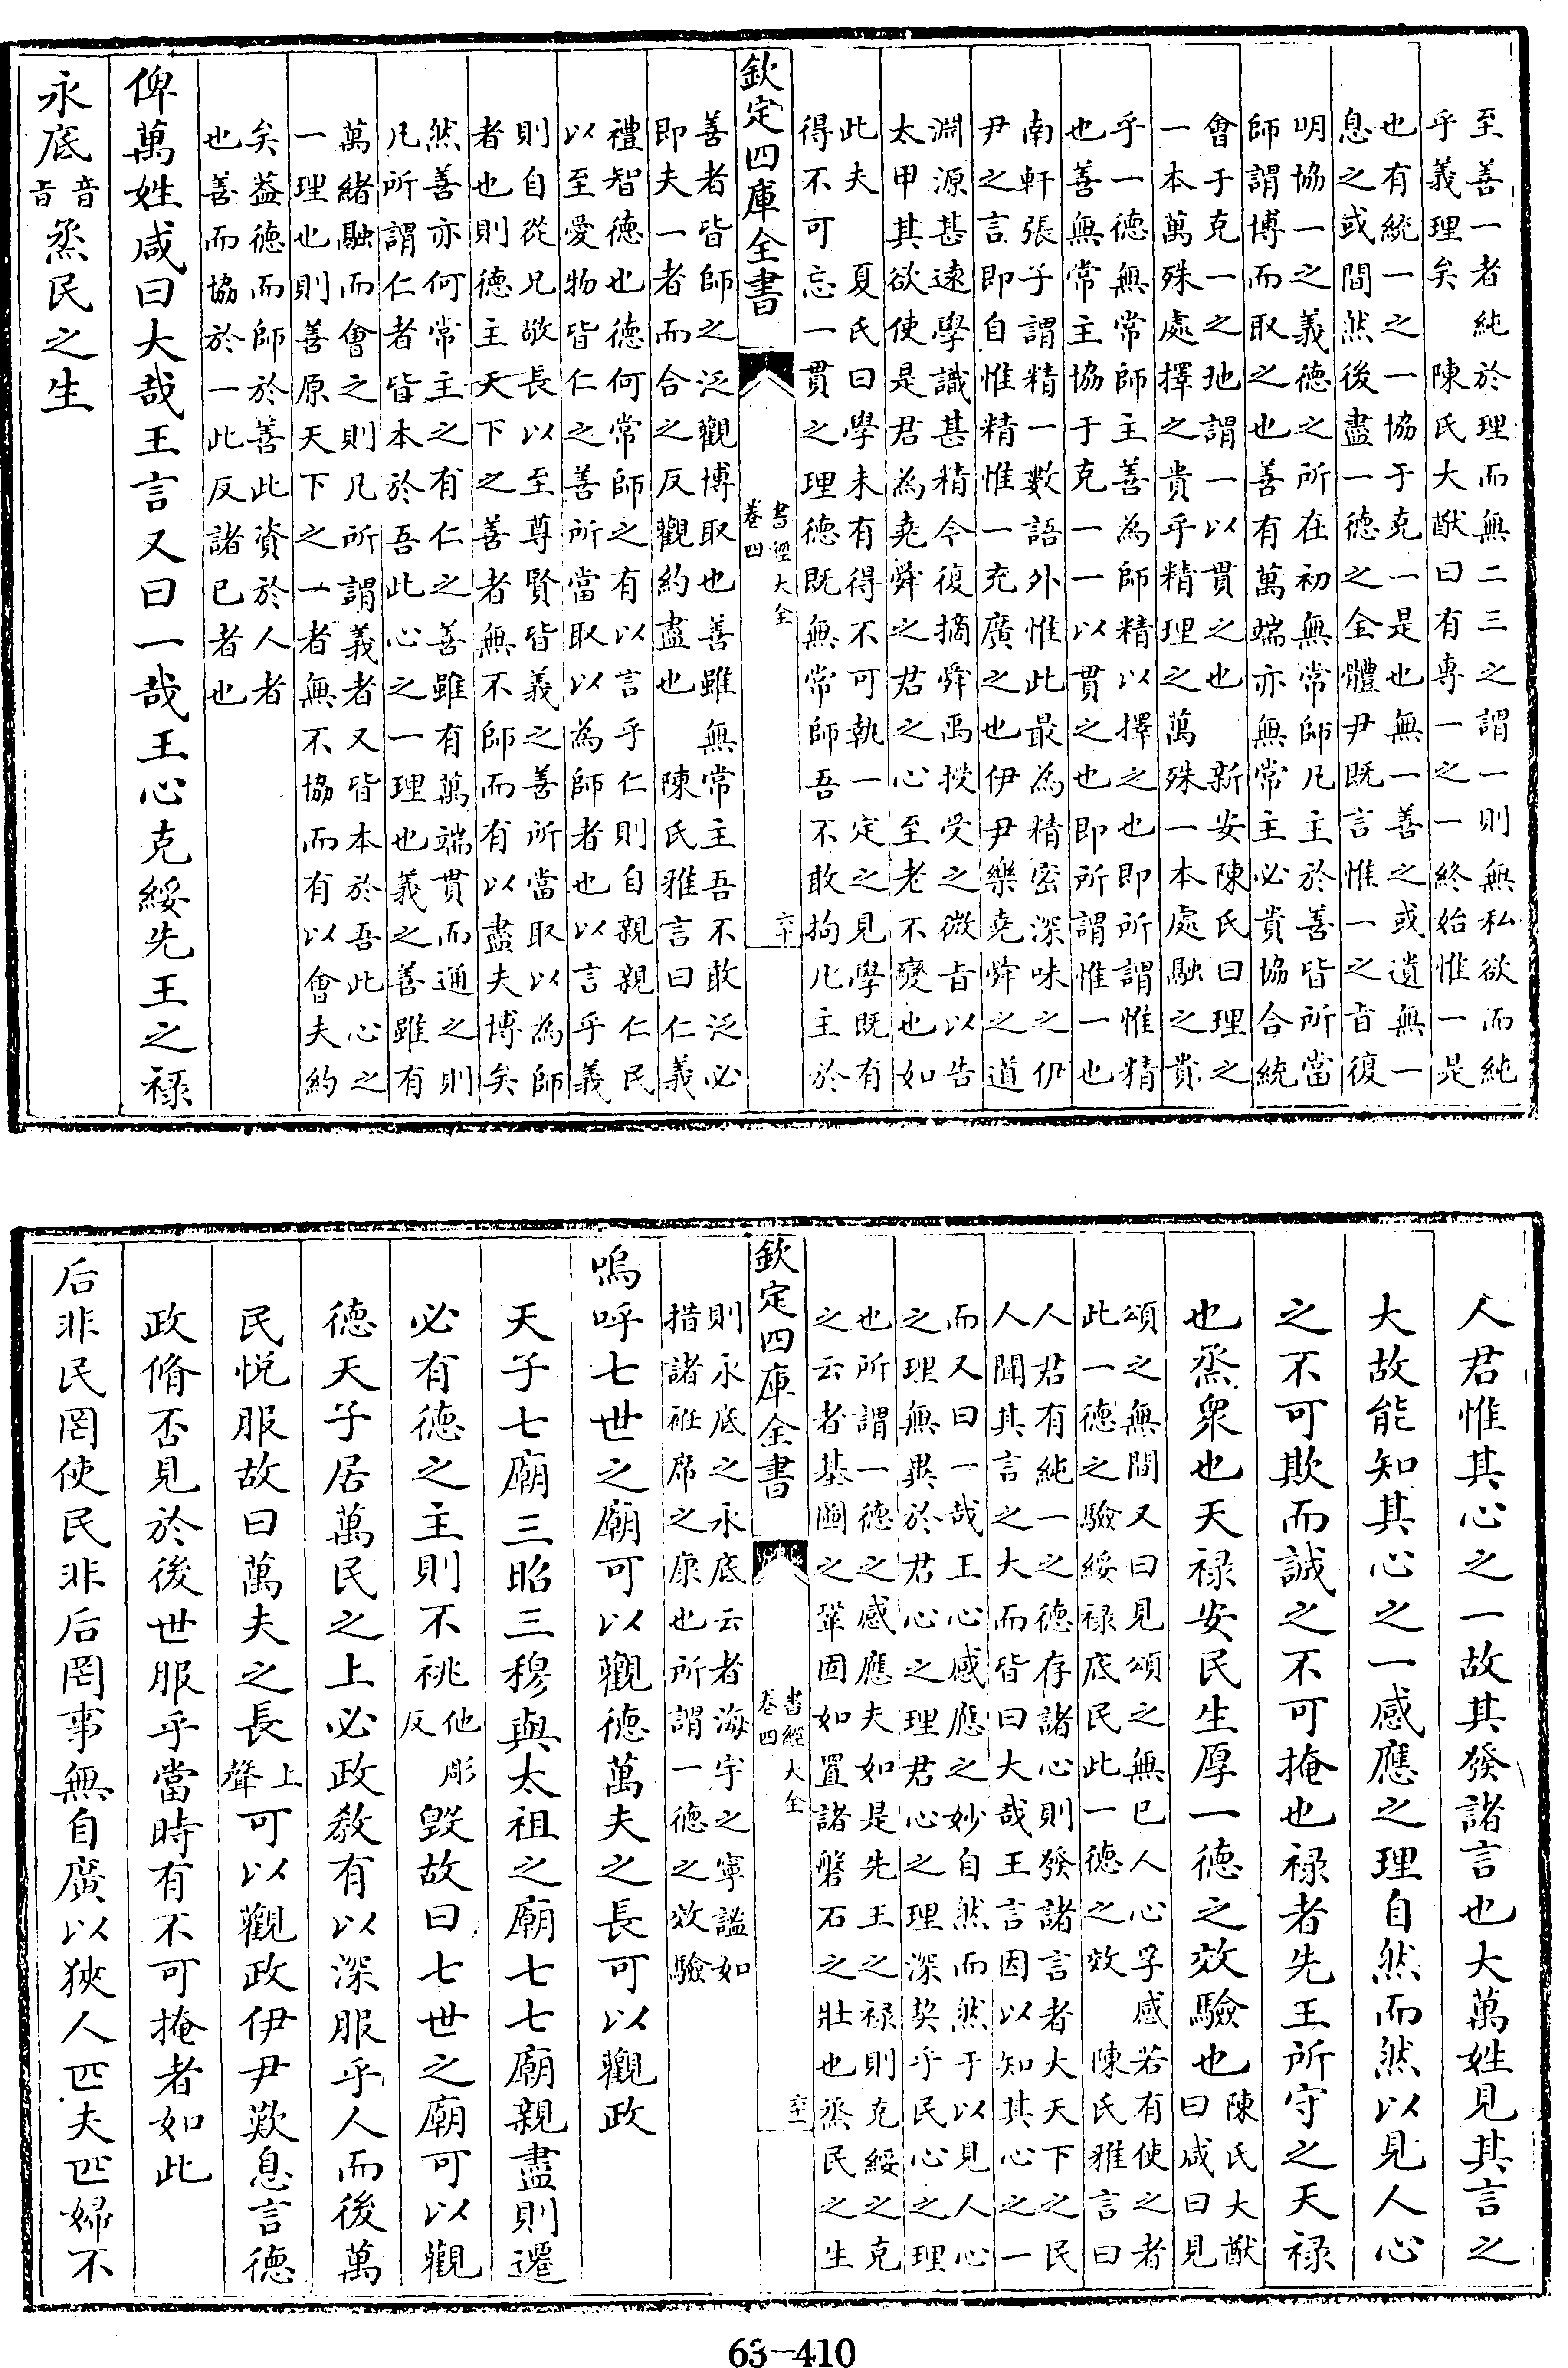 至善一者純於理而無二三之謂一則無私欲而純
乎義理矣 陳氏大猷曰有專一之一終始惟一是
也有統一之一協于克一是也無一善之或遺無一
息之或間然後盡一德之全體尹既言惟一之旨復
明協一之義德之所在初無常師凡主於善皆所當
師謂博而取之也善有萬端亦無常主必貴協合統
會于克一之地謂一以貫之也 新安陳氏曰理之
一本萬殊處擇之貴乎精理之萬殊一本處融之貴
乎一德無常師主善為師精以擇之也即所謂惟精
也善無常主協于克一一以貫之也即所謂惟一也
南軒張子謂精一數語外惟此最為精密深味之伊
尹之言即自惟精惟一充廣之也伊尹樂堯舜之道
淵源甚遠學識甚精今復摘舜禹授受之微旨以告
太甲其欲使是君為堯舜之君之心至老不變也如
此夫 夏氏曰學未有得不可執一定之見學既有
得不可忘一貫之理德既無常師吾不敢拘凡主於
欽定四庫全書
書經大全
卷四
六十
善者皆師之泛觀博取也善雖無常主吾不敢泛必
即夫一者而合之反觀約盡也 陳氏雅言曰仁義
禮智德也德何常師之有以言乎仁則自親親仁民
以至愛物皆仁之善所當取以為師者也以言乎義
則自從兄敬長以至尊賢皆義之善所當取以為師
者也則德主天下之善者無不師而有以盡夫博矣
然善亦何常主之有仁之善雖有萬端貫而通之則
凡所謂仁者皆本於吾此心之一理也義之善雖有
萬緒融而會之則凡所謂義者又皆本於吾此心之
一理也則善原天下之一者無不協而有以會夫約
矣蓋德而師於善此資於人者
也善而協於一此反諸已者也
俾萬姓咸曰大哉王言又曰一哉王心克綏先王之祿
永底音旨烝民之生
人君惟其心之一故其發諸言也大萬姓見其言之
大故能知其心之一感應之理自然而然以見人心
之不可欺而誠之不可掩也祿者先王所守之天祿
也烝衆也天祿安民生厚一德之效驗也陳氏大猷
曰咸曰見
頌之無間又曰見頌之無已人心孚感若有使之者
此一德之驗綏祿底民此一德之效 陳氏雅言曰
人君有純一之德存諸心則發諸言者大天下之民
人聞其言之大而皆曰大哉王言因以知其心之一
而又曰一哉王心感應之妙自然而然于以見人心
之理無異於君心之理君心之理深契乎民心之理
也所謂一德之感應夫如是先王之祿則克綏之克
之云者基圖之鞏固如置諸磐石之壯也烝民之生
欽定四庫全書
書經大全
卷四
六十一
則永底之永底云者海宇之寧謐如
措諸袵席之康也所謂一德之效驗
嗚呼七世之廟可以觀德萬夫之長可以觀政
天子七廟三昭三穆與太祖之廟七七廟親盡則遷
必有德之主則不祧他彫反毀故曰七世之廟可以觀
德天子居萬民之上必政教有以深服乎人而後萬
民悅服故曰萬夫之長上聲可以觀政伊尹歎息言德
政脩否見於後世服乎當時有不可掩者如此
后非民罔使民非后罔事無自廣以狹人匹夫匹婦不
63-410